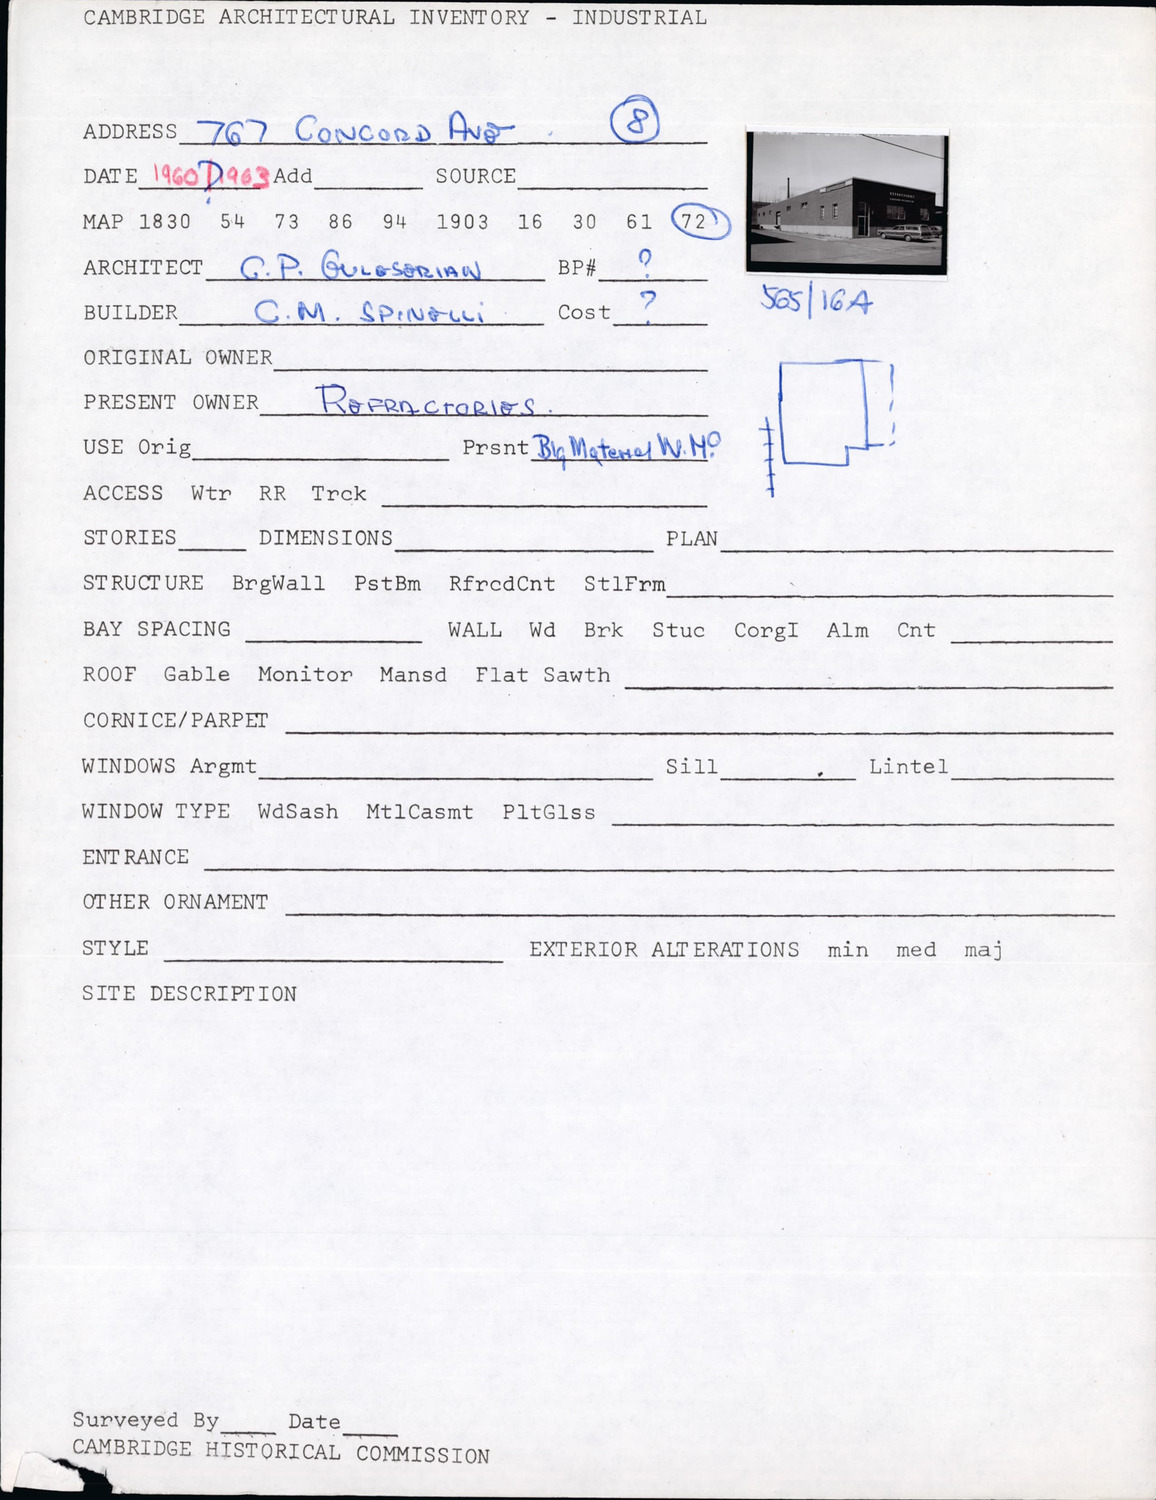 CAMBRIDGE ARCHITECTURAL INVENTORY - INDUSTRIAL
ADDRESS 767 CONCORD AVE. 8
DATE 1960? 1963 Add SOURCE
MAP 1830 54 73 86 94 1903 16 30 61 72
ARCHITECT G.P. GULESERIAN BP# ?
565/16A
BUILDER C.M. SPINELLI Cost ?
ORIGINAL OWNER
PRESENT OWNER REFRACTORIES.
USE Orig Prsnt Blg Material W.Ho
ACCESS Wtr RR Trck
STORIES DIMENSIONS PLAN
STRUCTURE BrgWall PstBm RfrcdCnt StlFrm
BAY SPACING WALL Wd Brk Stuc CorgI Alm Cnt
ROOF Gable Monitor Mansd Flat Sawth
CORNICE/PARPET
WINDOWS Argmt Sill Lintel
WINDOW TYPE WdSash MtlCasmt PltGlss
ENTRANCE
OTHER ORNAMENT
STYLE EXTERIOR ALTERATIONS min med maj
SITE DESCRIPTION
Surveyed By Date
CAMBRIDGE HISTORICAL COMMISSION